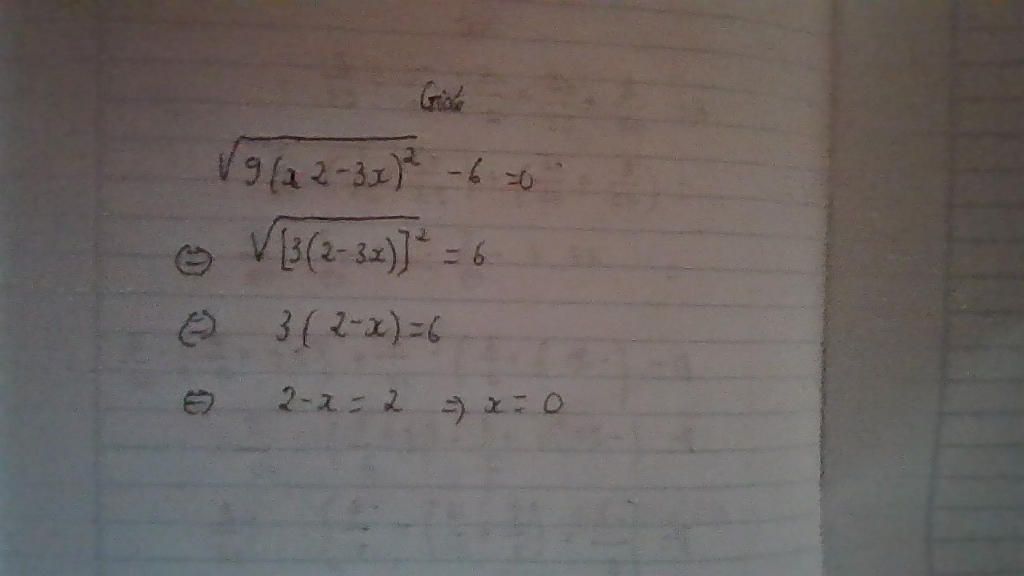 Giải
√9(x 2-3x)² - 6 = 0
⇔ √[3(2-3x)]² = 6
⇔ 3(2-x)=6
⇔ 2-x = 2 ⇒ x = 0